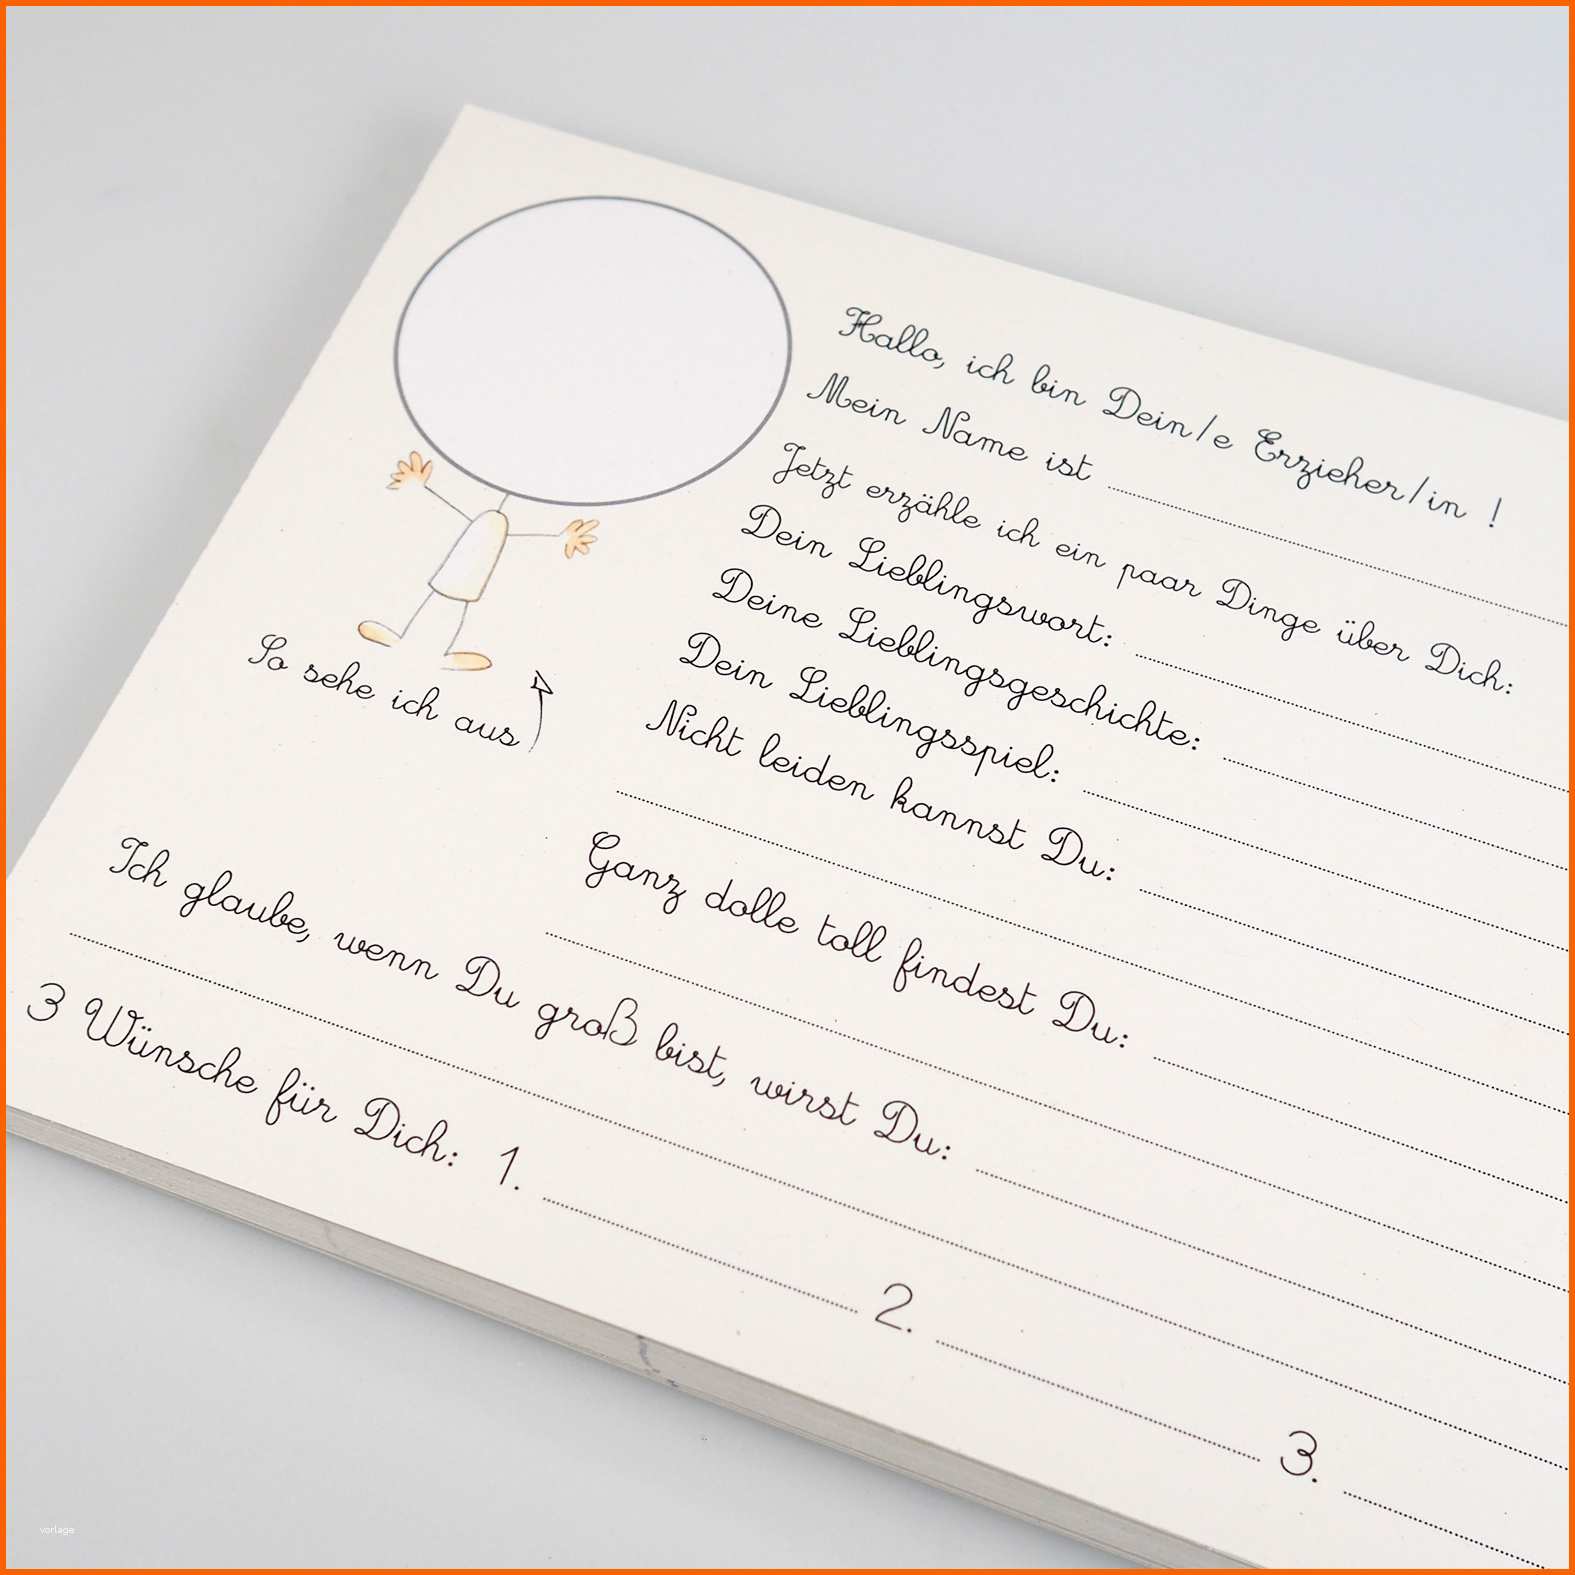 Hallo, ich bin Dein/e Erzieher/in !
Mein Name ist
Jetzt erzähle ich ein paar Dinge über Dich:
Dein Lieblingswort:
Deine Lieblingsgeschichte:
Dein Lieblingsspiel:
Nicht leiden kannst Du:
So sehe ich aus
Ganz dolle toll findest Du:
Ich glaube, wenn Du groß bist, wirst Du:
3 Wünsche für Dich: 1. 2. 3.
vorlage